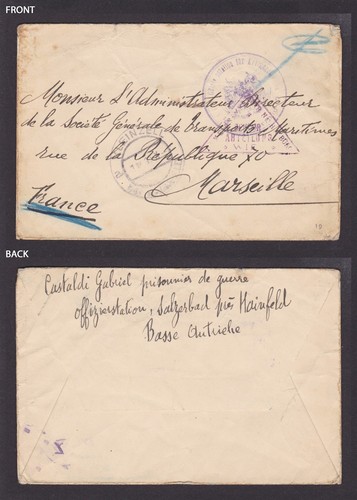 FRONT
Monsieur L'Administrateur Directeur
de la Société Générale de Transports Maritimes
rue de la République 70
Marseille
France
BACK
Castaldi Gabriel prisonnier de guerre
Offizierstation, Salzerbad près Hainfeld
Basse Autriche